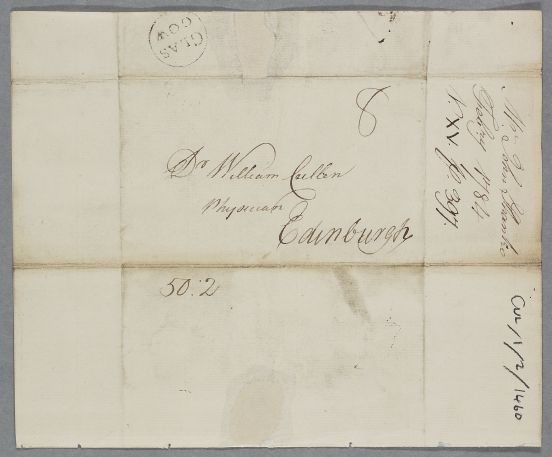 GLAS
GOW
8
Dr William Cullen
Physician
Edinburgh
50:2
Mr John
Febry 1784
V. XV. p. 397.
CUL/1/2/1460